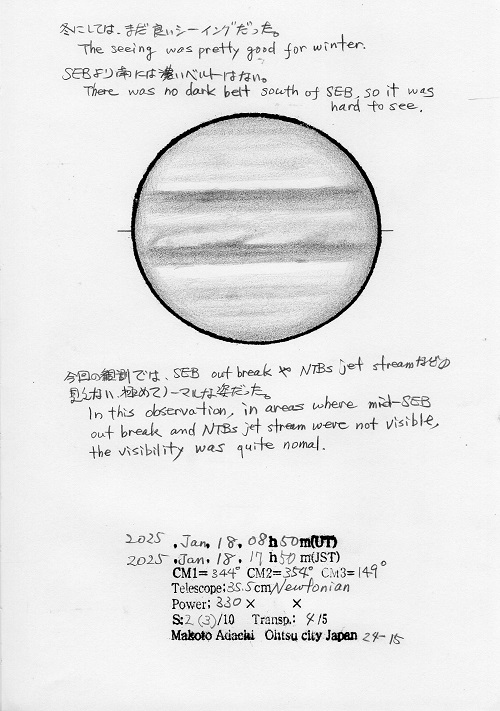 冬にしては、まだ良いシーイングだった。
The seeing was pretty good for winter.
SEBより南には濃いベルトはない。
There was no dark belt south of SEB, so it was
hard to see.
今回の観測では、SEB out break や NTBs jet stream などの
見えない、極めてノーマルな姿だった。
In this observation, in areas where mid-SEB
out break and NTBs jet stream were not visible,
the visibility was quite nomal.
2025 .Jan. 18. 08 h 50 m(UT)
2025 .Jan. 18. 17 h 50 m(JST)
CM1= 344° CM2= 354° CM3= 149°
Telescope: 35.5cm Newtonian
Power: 330 × ×
S: 2 (3)/10 Transp.: 4/5
Makoto Adachi Ohtsu city Japan 24-15